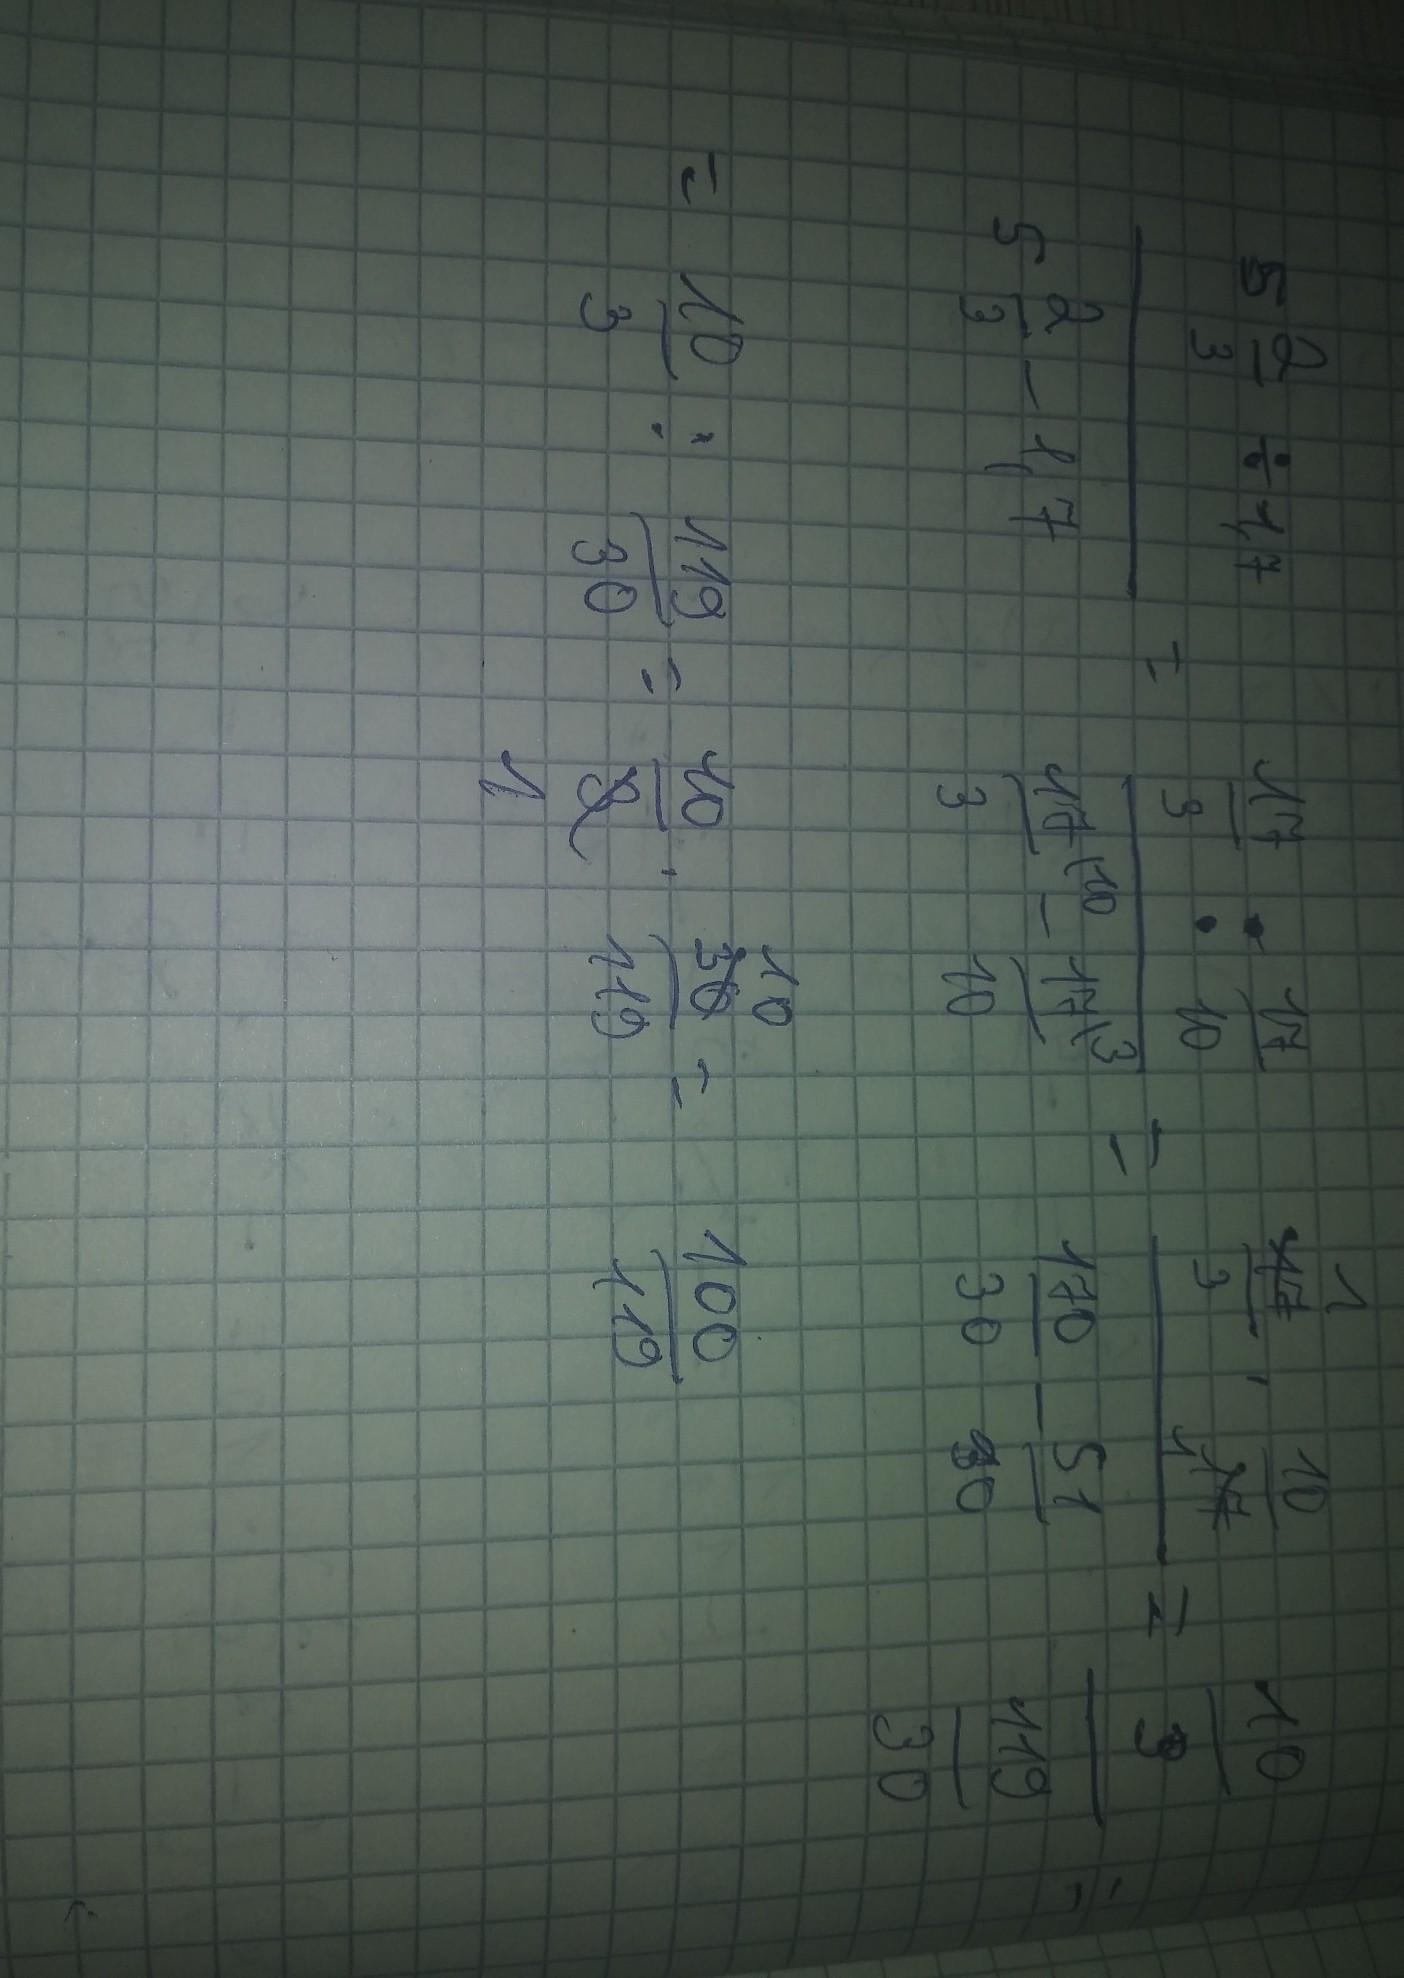 5 2/3 ÷ 1,7 / 5 2/3 - 1,7 = 17/3 : 17/10 / 17\10/3 - 17\3/10 = 1 17/3 · 10/17 1 / 170/30 - 51/30 = 10/3 / 119/30 =
= 10/3 : 119/30 = 10/3 1 · 10 30/119 = 100/119